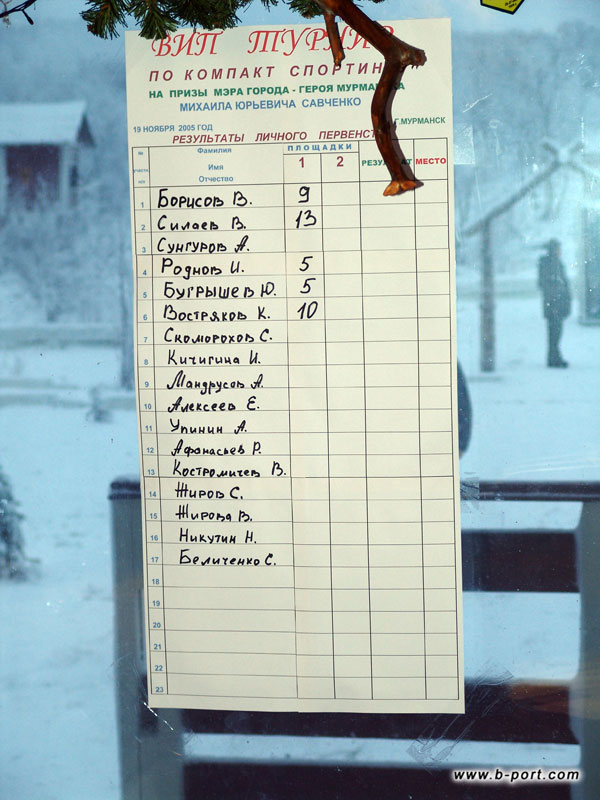 ВИП ТУРНИР
ПО КОМПАКТ СПОРТИНГ
НА ПРИЗЫ МЭРА ГОРОДА - ГЕРОЯ МУРМАНСКА
МИХАИЛА ЮРЬЕВИЧА САВЧЕНКО
19 НОЯБРЯ 2005 ГОД Г.МУРМАНСК
РЕЗУЛЬТАТЫ ЛИЧНОГО ПЕРВЕНСТВА
№ Фамилия Имя Отчество ПЛОЩАДКИ 1 2 РЕЗУЛЬТАТ МЕСТО
1 Борисов В. 9
2 Силаев В. 13
3 Сунгуров А.
4 Роднов И. 5
5 Бугрышев Ю. 5
6 Востряков К. 10
7 Скоморохов С.
8 Кичигина И.
9 Мандрусов А.
10 Алексеев Е.
11 Упинин А.
12 Афанасьев Р.
13 Костромичев В.
14 Жиров С.
15 Жирова В.
16 Никутин Н.
17 Беличенко С.
18
19
20
21
22
23
www.b-port.com